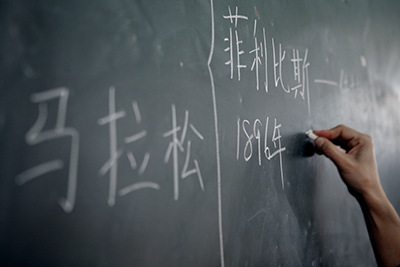 马拉松
菲利比斯一
1896年